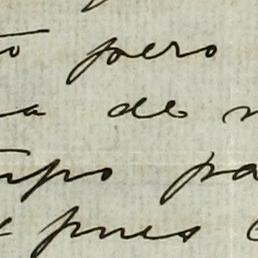 to pero
a de n
mpo pa
y pues